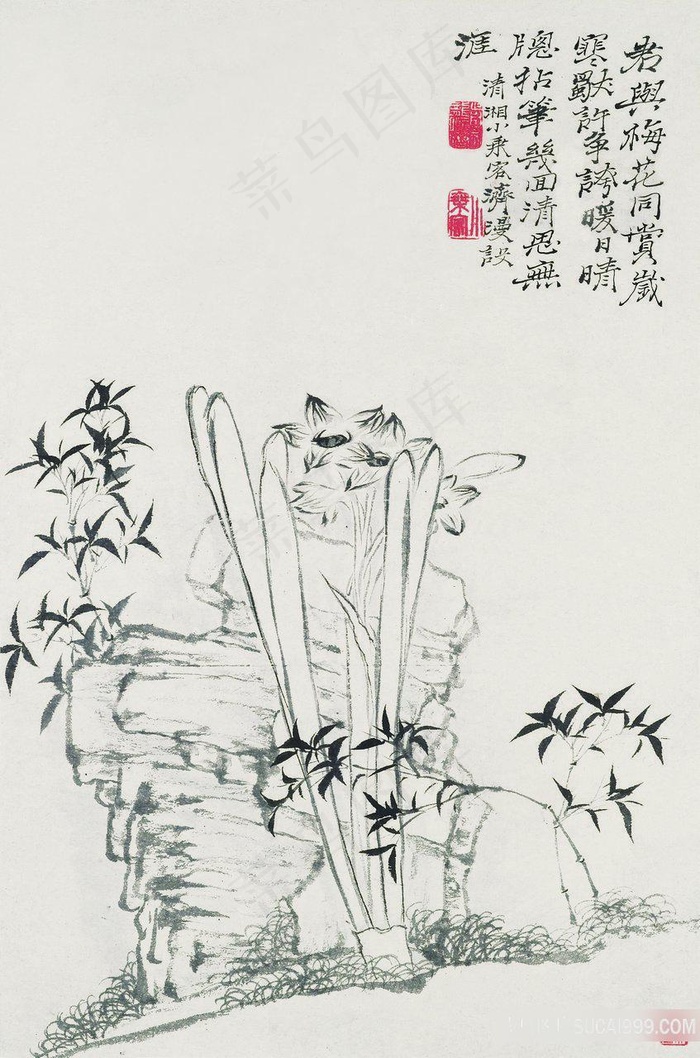 君與梅花同賞歲
寒獨許爭誇暖日晴
牕拈筆幾回清思無
涯
清湘小乘客濟漫設
菜鸟图库
SUCAI999.COM